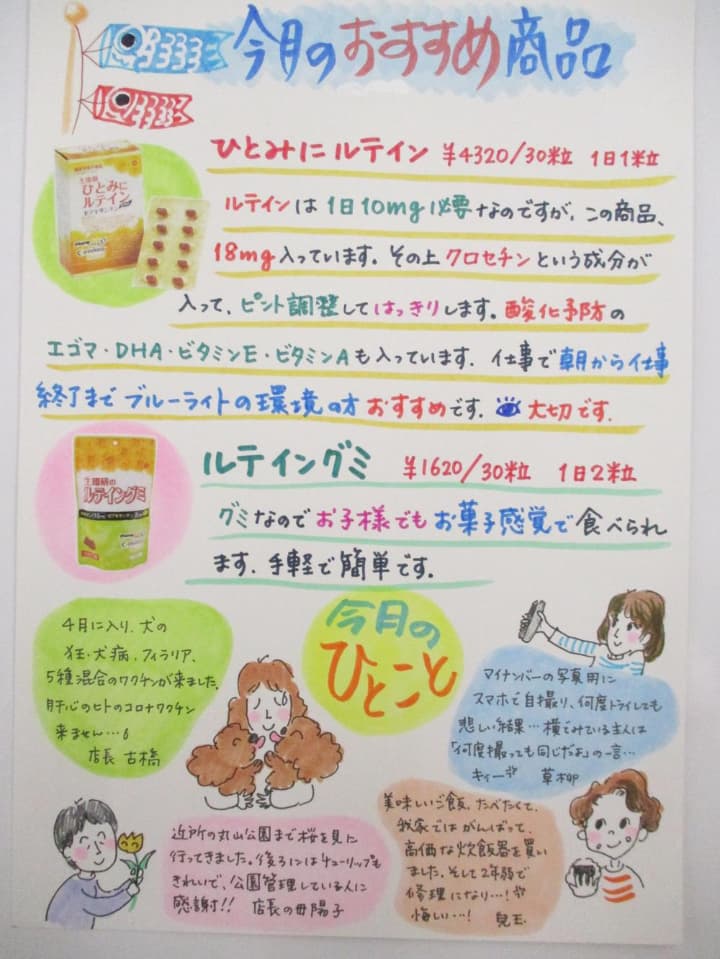 今月のおすすめ商品
ひとみにルテイン ¥4320/30粒 1日1粒
ルテインは1日10mg必要なのですが、この商品、
18mg入っています。その上クロセチンという成分が
入って、ピント調整してはっきりします。酸化予防の
エゴマ・DHA・ビタミンE・ビタミンAも入っています。仕事で朝から仕事
終了までブルーライトの環境の方おすすめです。大切です。
生環研
ひとみに
ルテイン
ルテイングミ ¥1620/30粒 1日2粒
グミなのでお子様でもお菓子感覚で食べられ
ます。手軽で簡単です。
生環研の
ルテイングミ
今月の
ひとこと
4月に入り、犬の
狂犬病、フィラリア、
5種混合のワクチンが来ました。
肝心のヒトのコロナワクチン
来ません…
店長 古橋
マイナンバーの写真用に
スマホで自撮り、何度トライしても
悲しい結果…横でみている主人は
「何度撮っても同じだよ」の一言…
キィー 草柳
近所の丸山公園まで桜を見に
行ってきました。後ろにはチューリップも
きれいで、公園管理している人に
感謝!! 店長の母陽子
美味しいご飯、たべたくて、
我家ではがんばって、
高価な炊飯器を買い
ました。そして2年弱で
修理になり…!
悔しい…! 兒玉